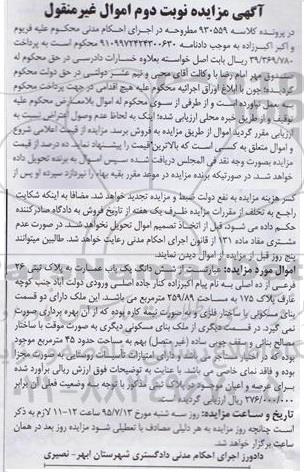 آگهی مزایده نوبت دوم اموال غیرمنقول
در پرونده کلاسه ۹۳۰۵۵۹ مطروحه در اجرای احکام مدنی محکوم علیه فریوم
و اکبر اکبرزاده به موجب دادنامه ۹۱۰۹۹۷۲۴۲۴۳۰۰۶۳۰ محکوم است به پرداخت
۳۹/۳۶۹/۷۸۰ ریال بابت اصل خواسته بعلاوه خسارات دادرسی در حق محکوم له
صندوق مهر امام رضا با وکالت آقای محبی و نیم عشر دولتی در حق دولت محکوم
گردیده؛ چون با ابلاغ اوراق اجرائیه محکوم علیه هیچ اقدامی در جهت پرداخت محکوم
به عمل نیاورده است و از طرفی از سوی محکوم له اموال بلامعارض محکوم علیه
توقیف و از طریق خبره محلی ارزیابی شد؛ اینک به لحاظ عدم وصول اعتراض نسبت به
ارزیابی مقرر گردید اموال از طریق مزایده به فروش برسد. مزایده از قیمت اعلامی شروع
و اموال متعلق به کسی است که بالاترین قیمت را پیشنهاد نماید. ده درصد از قیمت
مزایده بصورت وجه نقد فی المجلس دریافت شده سپس اموال به برنده تحویل داده
خواهد شد. در صورتیکه برنده مزایده در موعد مقرر بقیه بهاء را نپردازد سپرده او پس از
کسر هزینه مزایده به نفع دولت ضبط و مزایده تجدید خواهد شد. مضافا به اینکه شکایت
راجع به تخلف از مقررات مزایده ظرف یک هفته از تاریخ فروش به دادگاه صادرکننده
حکم داده می شود، قبل از اتخاذ تصمیم اموال تحویل نخواهد شد. در صورت عدم
مشتری مفاد ماده ۱۳۱ از قانون اجرای احکام مدنی رعایت خواهد شد. طالبین میتوانند
پنج روز قبل از مزایده از اموال دیدن نمایند.
اموال مورد مزایده: عبارتست از شش دانگ یک باب عمارت به پلاک ثبتی ۲۶
فرعی از ده اصلی به نام پیام اکبرزاده کنار جاده اصلی ورودی دولت آباد جنب کوچه
عارف پلاک ۱۷۵ به مساحت ۲۵۹/۸۹ مترمربع می باشد. این ملک دارای دو قسمت
بنای مسکونی با ساختار فلزی و بصورت نیمه کاره بوده که از آن بهره برداری صورت
نمی گیرد. در قسمت دیگری از ملک بنای مسکونی دیگری به صورت موقت با ساختار
مصالح بنائی و سقف چوبی ساده (غیر متصل) بهم به مساحت حدود ۴۵ مترمربع موجود
بوده که در آن
بوده و فاقد نمای خاصی می باشد. با عنایت به توضیحات فوق ارزش ریالی برآورد شده
برای عرصه و اعیان موجود در پلاک ثبتی مذکور با توجه به وضعیت فعلی آن برابر
۲۷۶/۰۰۰/۰۰۰ ریال ارزیابی گردید.
تاریخ و ساعت مزایده: روز سه شنبه مورخ ۹۵/۷/۱۳ ساعت ۱۲-۱۱ لازم به ذکر
است چنانچه روز مزایده به هر دلیلی مصادف با تعطیلی شود مزایده روز بعد در همان
ساعت برگزار خواهد شد.
دادورز اجرای احکام مدنی دادگستری شهرستان ابهر- نصیری